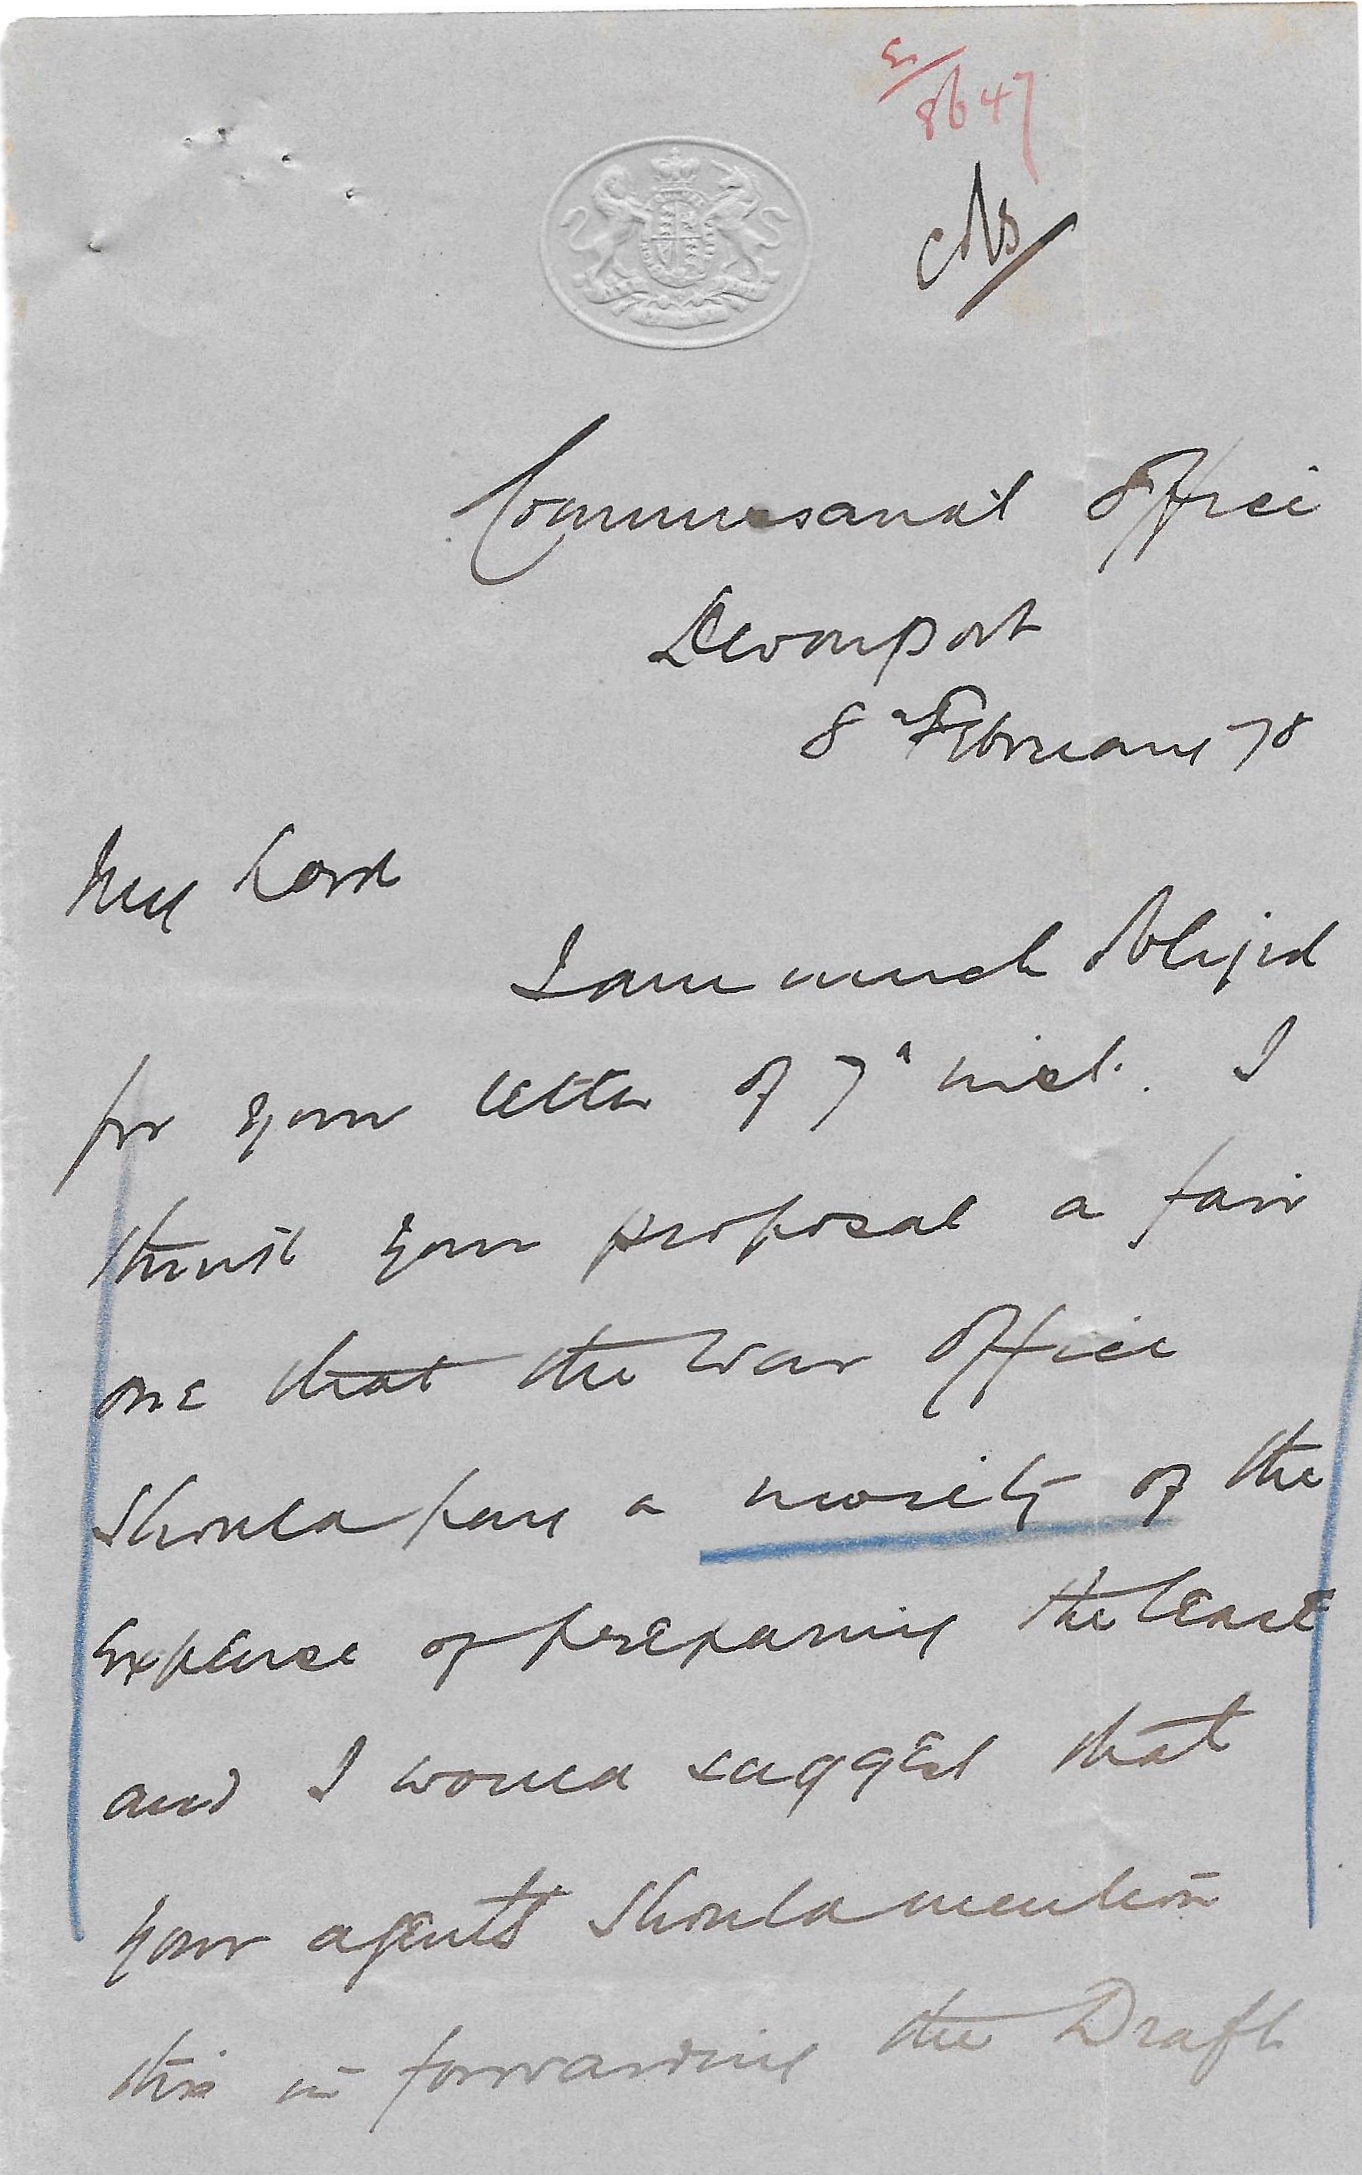 8647
Commissariat Office
Devonport
8th February 78
My Lord
I am much obliged
for your letter of 7th inst. I
think your proposal a fair
one that the War Office
should pay a moiety of the
expense of preparing the lease
and I would suggest that
your agents should mention
this in forwarding the Draft